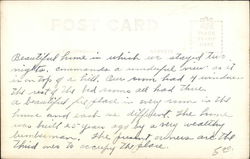 POST CARD
PLACE
STAMP
HERE
Beautiful home in which we stayed two
nights. Commands a wonderful view as it
is on top of a hill. Our room had 7 windows
the rest of the bed rooms all had three.
a beautiful fire place in every room in the
house and each is different. The home
was built 20 years ago by a very wealthy
lumberman. The present owners are the
third ones to occupy the place.